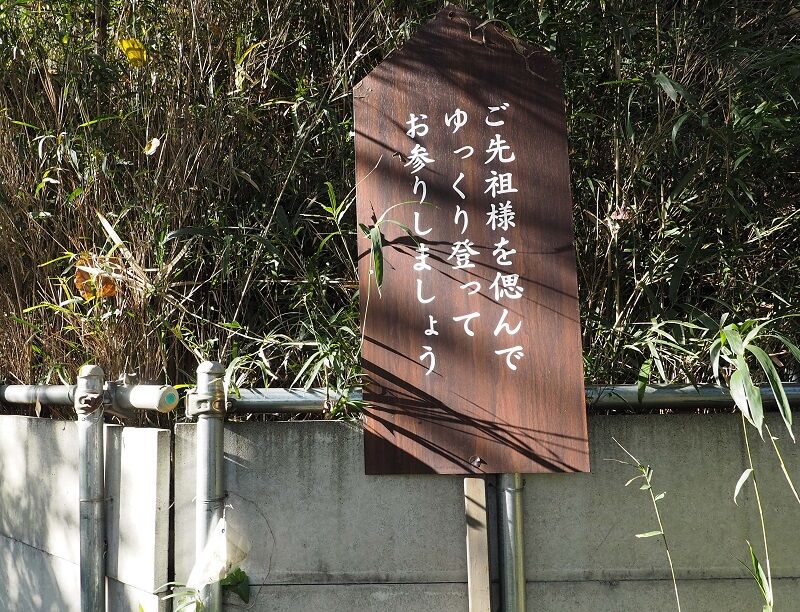 ご先祖様を偲んで
ゆっくり登って
お参りしましょう